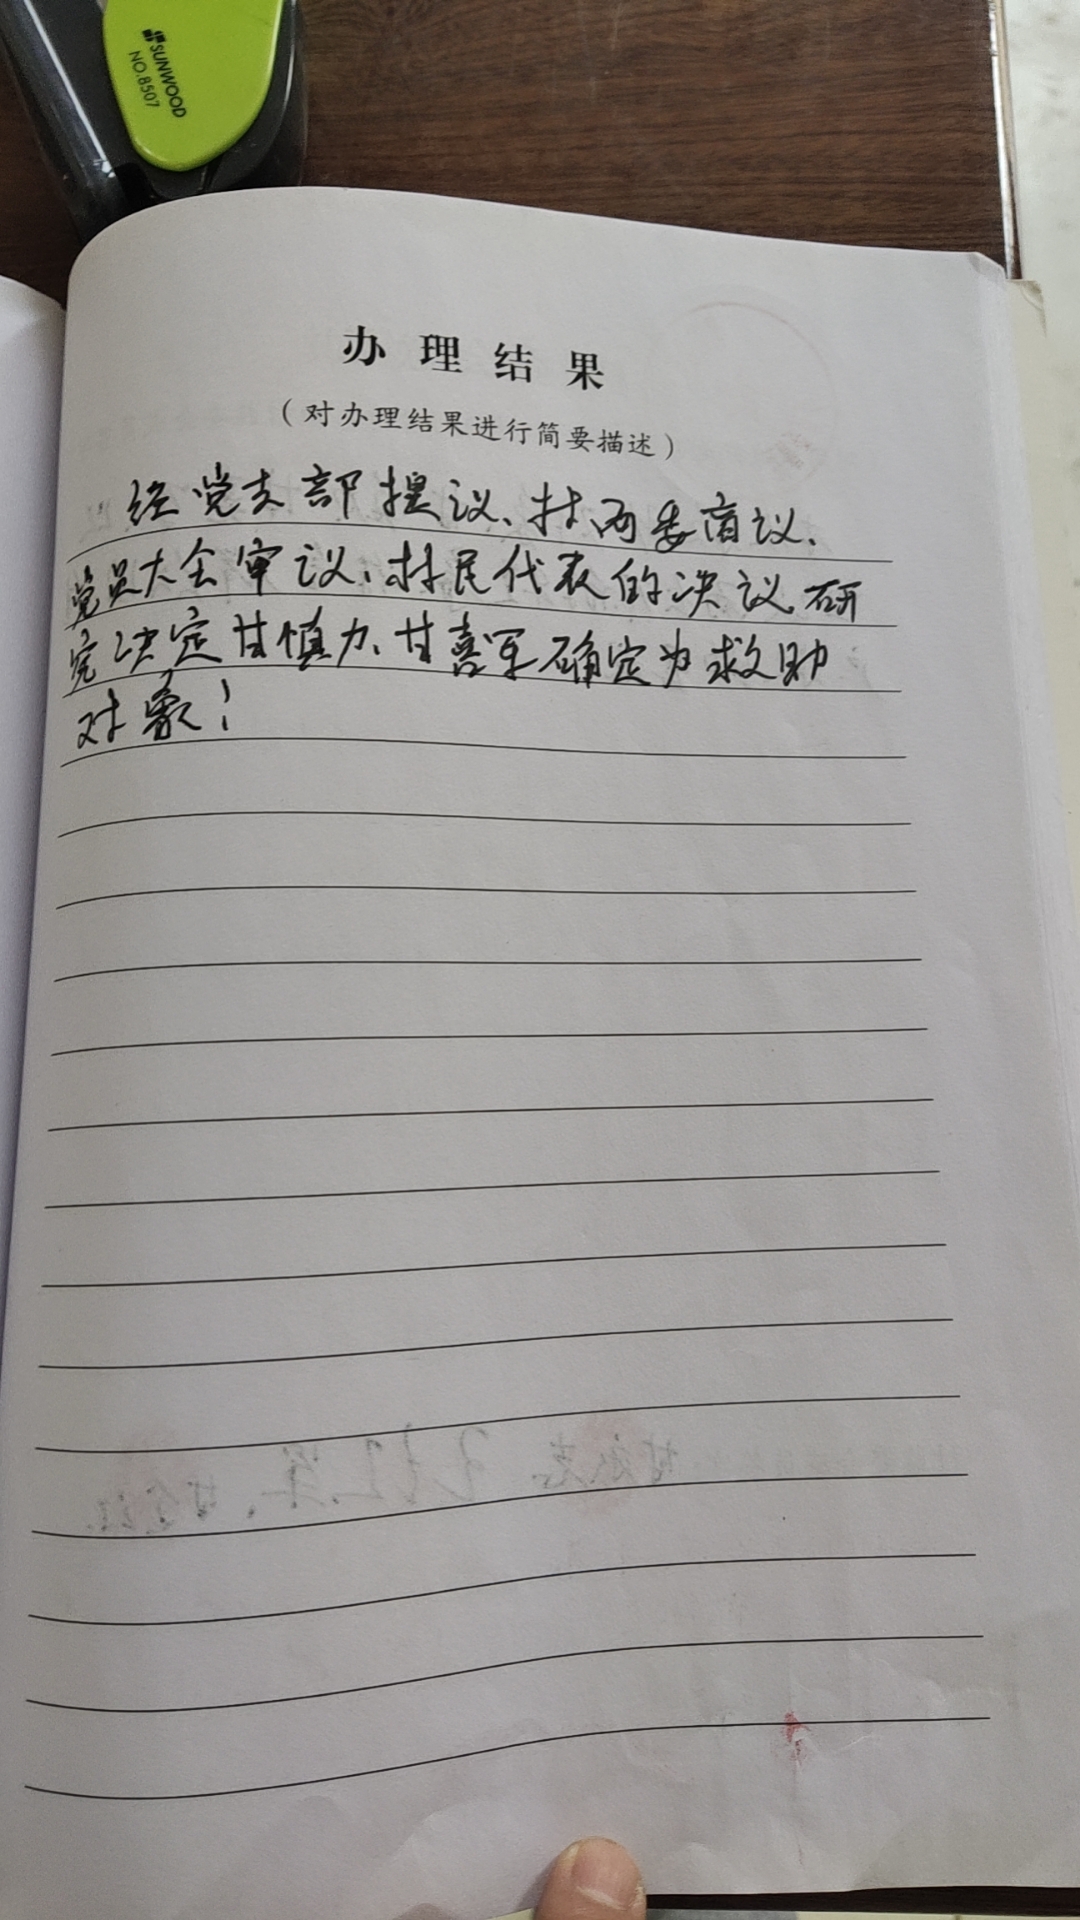 SUNWOOD
NO.8507
办理结果
（对办理结果进行简要描述）
经党支部提议、村两委商议、
党员大会审议、村民代表的决议研
究决定甘慎力、甘喜军确定为救助
对象！